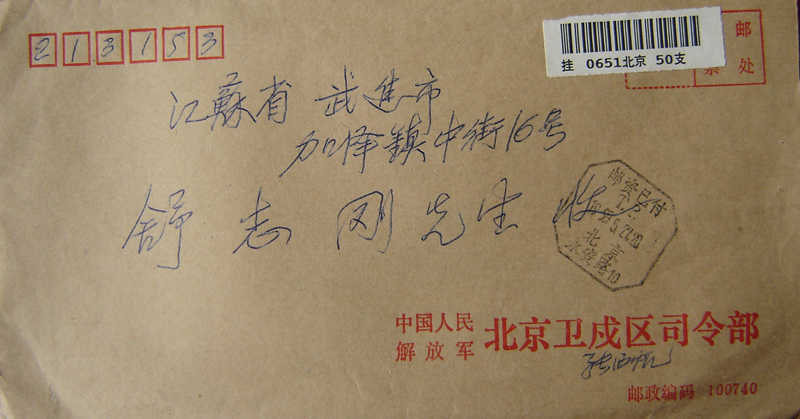 213153
挂 0651北京 50支
邮
票 处
江蘇省 武進市
加泽鎮中街16号
舒志刚先生 收
邮资已付
T.P.
北京
永安路10
中国人民
解放军
北京卫戍区司令部
邮政编码 100740